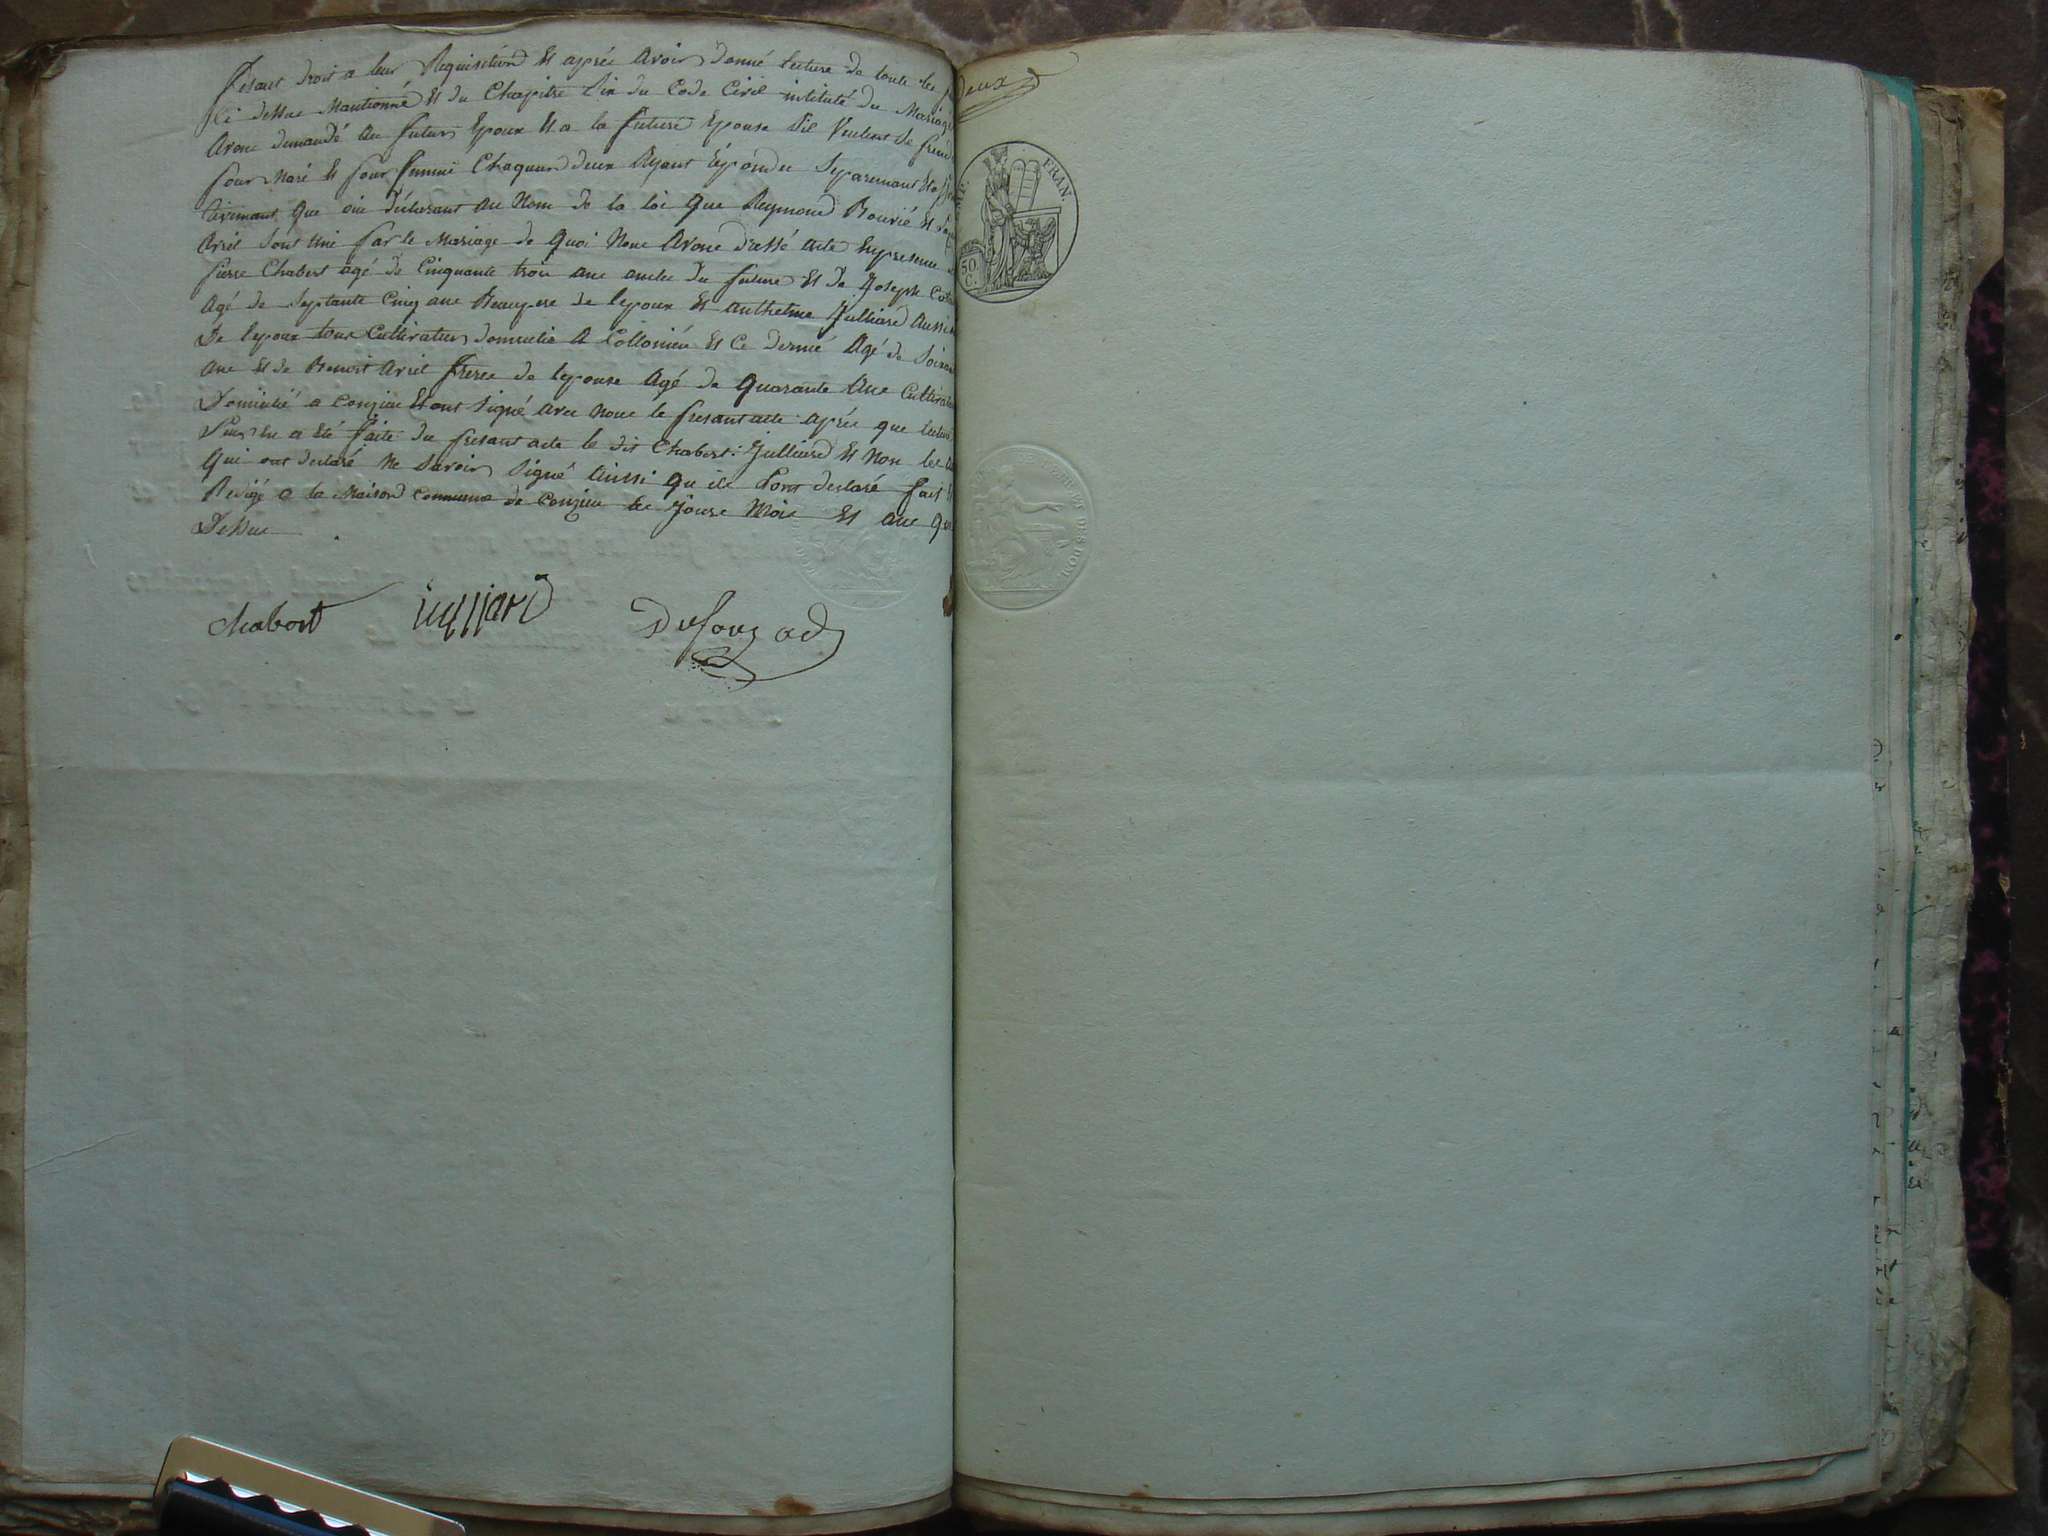 fesant droit a leur Requisition Et aprés avoir donné lecture de toute les
Ci dessue Mantionné Et du Chapitre Six du Code Civil intitulé du Mariage
avone demandé au futur Epoux Et a la future Epouse s'il Veulent se prendre
pour Mari Et pour femme Chaqun deux Ayant répondu Separemant Et affir
tivemant que oui déclarant au Nom de la loi que Reymond Bouvié Et
Avril sont Uni par le Mariage de quoi Nous Avone dréssé acte En presence
pierre Chabert agé de Cinquante troi ane oncle du future Et de Joseph
Agé de Septante Cinq ane Beaupere de lepoux Et anthelme Julliard Aussi
De lepoux tous Cultivateur domicilie A Collonieu Et Ce dernié Agé de
ane Et de Benoit Avril frere de lepouse Agé de quarante Ane Cultivateur
Domicilié a Conzieu Et ont Signé avec Noue le presant acte aprée que lecture
leur en a Eté faite du presant acte le dit Chabert. Julliard Et Non les
Qui ont declaré Ne Savoir Signé ainsi qu ile lont declaré fait Et
Redigé a la Maison Commune de Conzieu le Jour Moie Et ane Que
Dessue
chabert julljard Dufourd
deux
FRAN.
50 C.